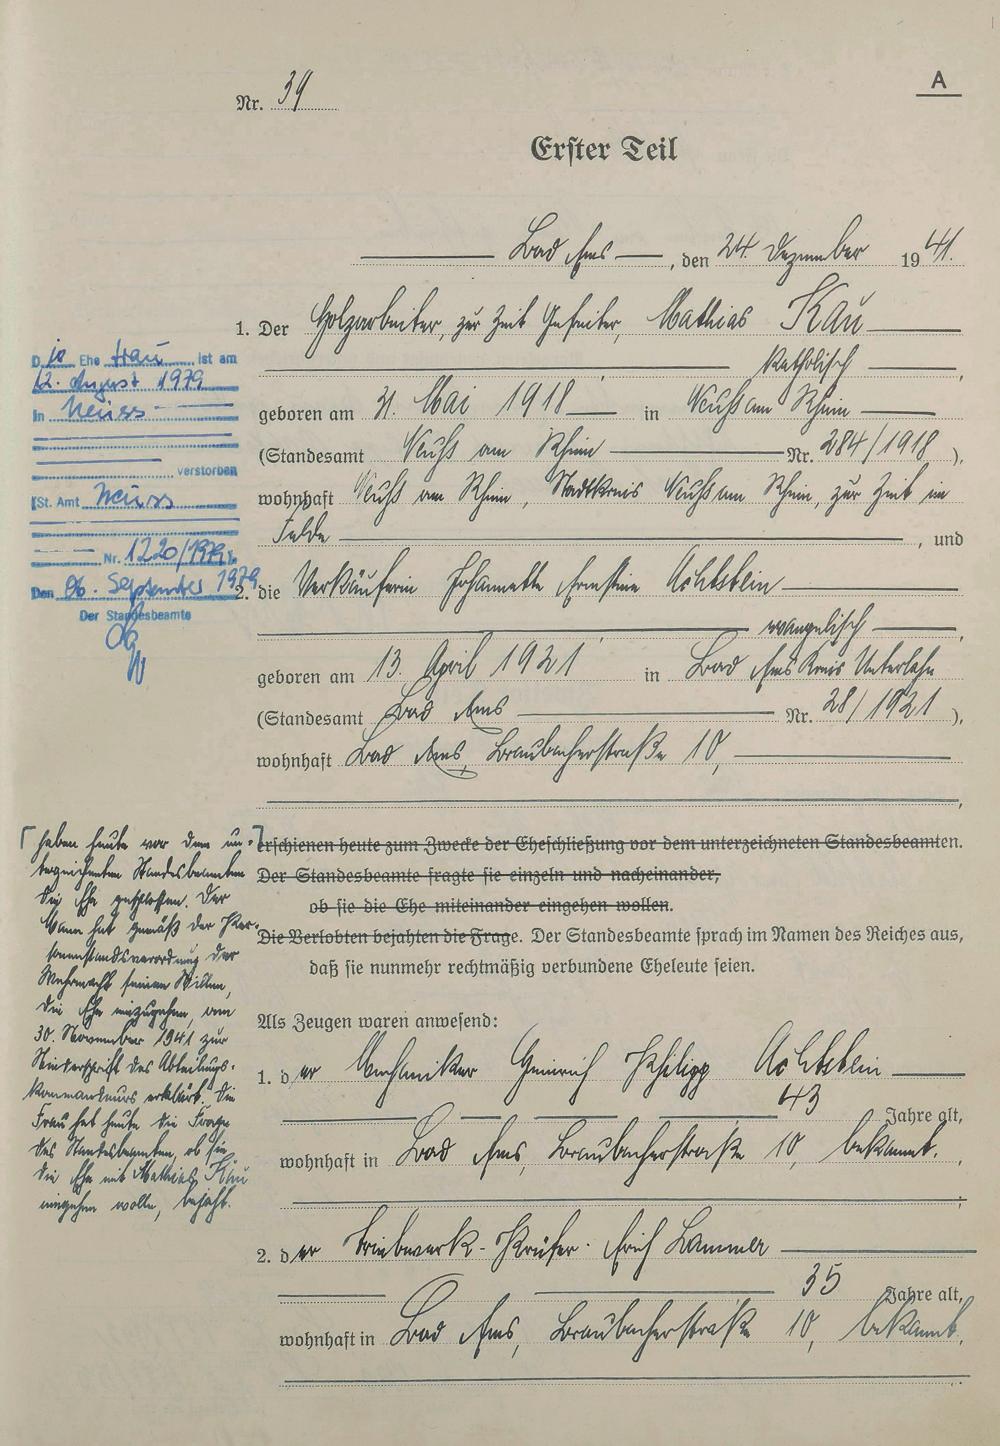 A
Nr. 39
Erster Teil
Bad Ems, den 24. Dezember 1941.
1. Der Holzarbeiter, zur Zeit Gefreiter, Mathias Kau
katholisch,
geboren am 31. Mai 1918 in Neuß am Rhein
(Standesamt Neuß am Rhein Nr. 284/1918),
wohnhaft Neuß am Rhein, Stadtkreis Neuß am Rhein, zur Zeit im
Felde, und
2. die Verkäuferin Johannette Ernstine Achtstein
evangelisch,
geboren am 13. April 1921 in Bad Ems Kreis Unterlahn
(Standesamt Bad Ems Nr. 28/1921),
wohnhaft Bad Ems, Braubacherstraße 10,
erschienen heute zum Zwecke der Eheschließung vor dem unterzeichneten Standesbeamten.
Der Standesbeamte fragte sie einzeln und nacheinander,
ob sie die Ehe miteinander eingehen wollen.
Die Verlobten bejahten die Frage. Der Standesbeamte sprach im Namen des Reiches aus,
daß sie nunmehr rechtmäßig verbundene Eheleute seien.
Als Zeugen waren anwesend:
1. der Mechaniker Heinrich Philipp Achtstein
43 Jahre alt,
wohnhaft in Bad Ems, Braubacherstraße 10, bekannt.
2. der Triebwerk-Prüfer Erich Lammer
35 Jahre alt,
wohnhaft in Bad Ems, Braubacherstraße 10, bekannt.
Die Ehefrau ist am
12. August 1979
in Neuss
verstorben
(St. Amt Neuss
Nr. 1220/1979).
Den 06. September 1979
Der Standesbeamte
haben heute vor dem un-
terzeichneten Standesbeamten
die Ehe geschlossen. Der
Mann hat gemäß der Per-
sonenstandsverordnung der
Wehrmacht seinen Willen,
die Ehe einzugehen, am
30. November 1941 zur
Niederschrift des Abteilungs-
kommandeurs erklärt. Die
Frau hat heute die Frage
des Standesbeamten, ob sie
die Ehe mit Mathias Kau
eingehen wolle, bejaht.